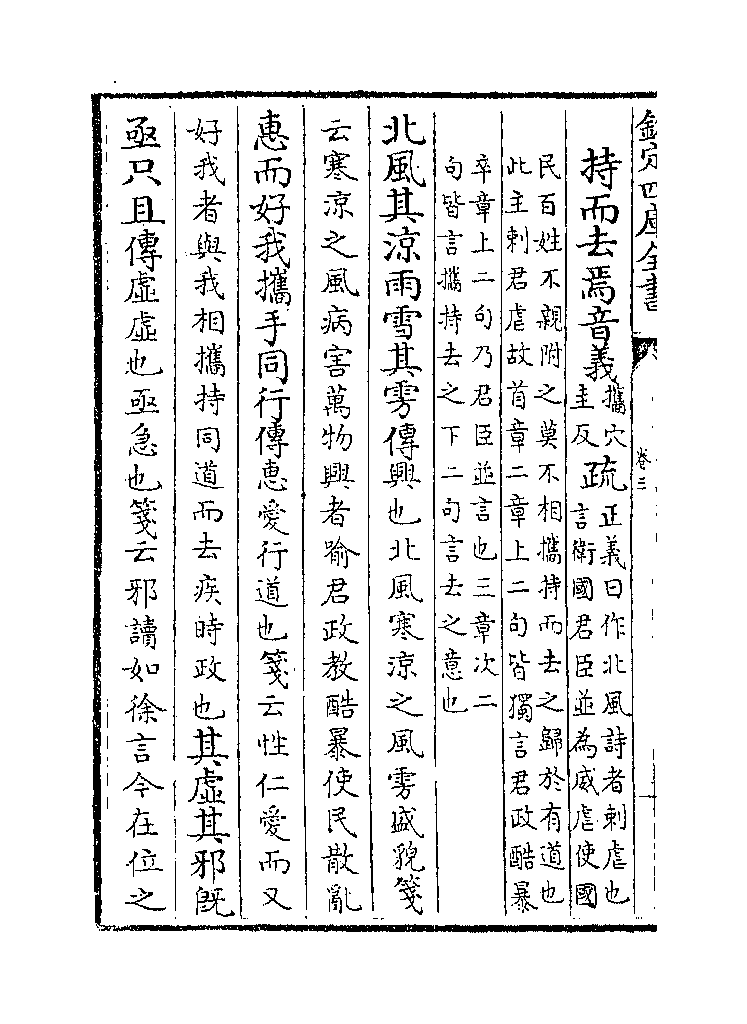 欽定四庫全書
卷三
持而去焉音義攜穴
圭反疏正義曰作北風詩者刺虐也
言衛國君臣並為威虐使國
民百姓不親附之莫不相攜持而去之歸於有道也
此主刺君虐故首章二章上二句皆獨言君政酷暴
卒章上二句乃君臣並言也三章次二
句皆言攜持去之下二句言去之意也
北風其涼雨雪其雱傳興也北風寒涼之風雱盛貌箋
云寒涼之風病害萬物興者喻君政教酷暴使民散亂
惠而好我攜手同行傳惠愛行道也箋云性仁愛而又
好我者與我相攜持同道而去疾時政也其虛其邪既
亟只且傳虛虛也亟急也箋云邪讀如徐言今在位之